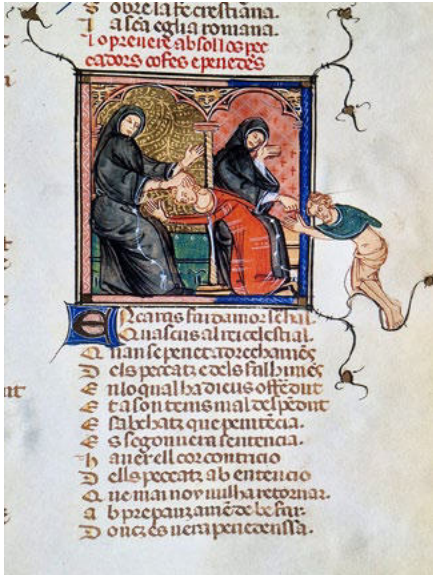 S obre la fe crestiana.
I a sca eglia romana.
Lo prevere absol los pec
cadors cofes e penedēs
E Ncaras fai damor senhal.
Q uascus al rei celestial.
Q uan se penet adrechamēs
D els peccatz e dels falhimēs
E n lo qual ha dieus offēdut
E ta son temis mal despēdut
E sabchatz que penitēcia.
E s segon vera sentencia.
h aver ell cor contricio
D ells peccatz ab entencio
Q ue mai noy vulha retornar.
a b prepauzamē de be far.
D oncz es vera penedenssa.
nt